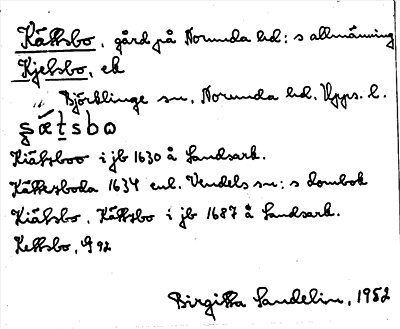 Kättsbo, gård på Norunda hd:s allmänning
Kjetsbo, ek
Björklinge sn, Norunda hd, Upps. l.
ṣǽt̠sbɷ
Kiätsboo i jb 1630 å Landsark.
Kättestboda 1634 enl. Vendels sn:s dombok
Kiätsbo, Kättsbo i jb 1687 å Landsark.
Kettsbo, G 92
Birgitta Sandelin, 1952